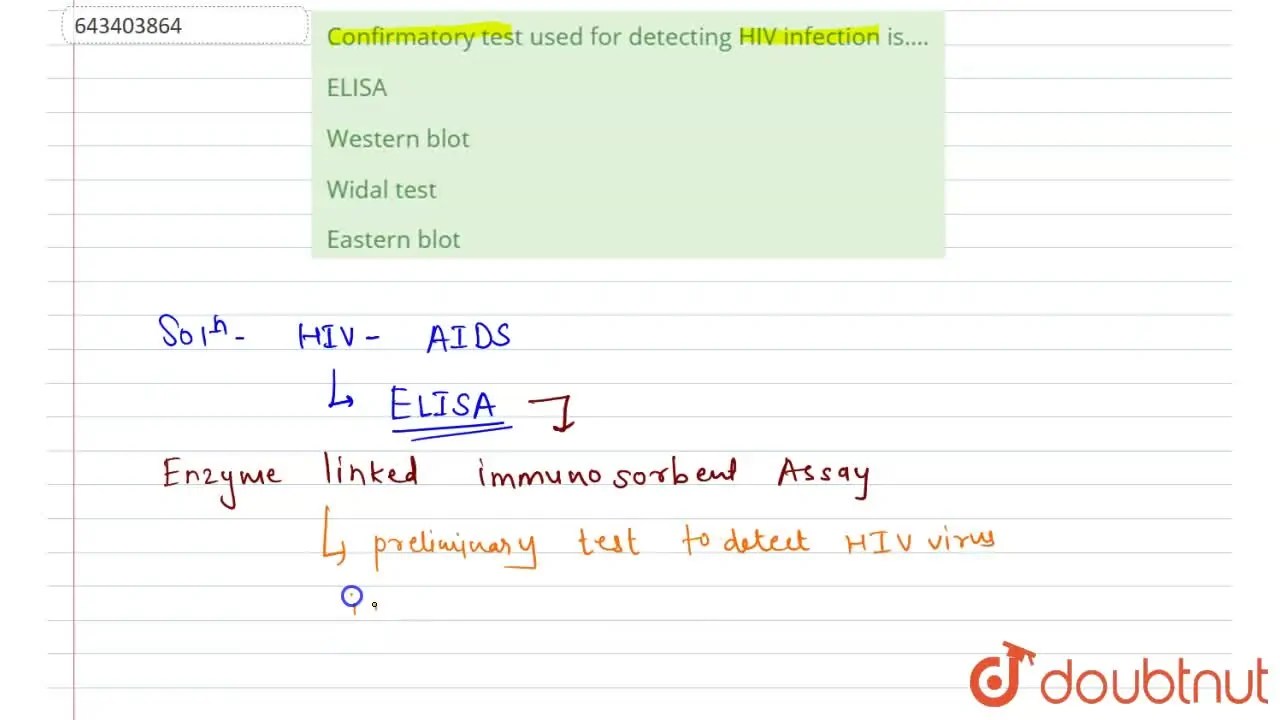 643403864
Confirmatory test used for detecting HIV infection is....
ELISA
Western blot
Widal test
Eastern blot
Solⁿ- HIV - AIDS
↳ ELISA
Enzyme linked immunosorbent Assay
↳ preliminary test to detect HIV virus
doubtnut